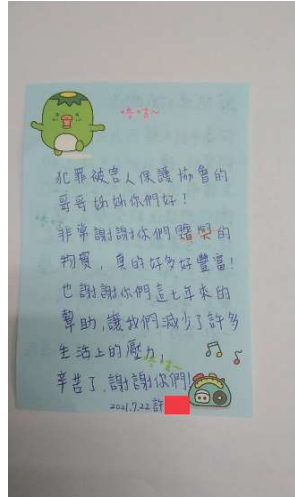 嗨嗨~
犯罪被害人保護協會的
哥哥姊姊你們好!
非常謝謝你們贈與的
物資,真的好多好豐富!
也謝謝你們這七年來的
幫助,讓我們減少了許多
生活上的壓力,
辛苦了,謝謝你們!
2021.7.22 許